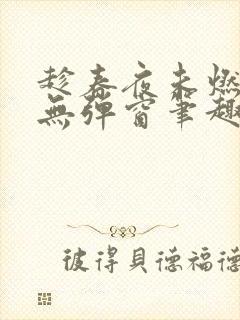 趁春夜未燃
無彈窗筆趣
彼得貝德福德